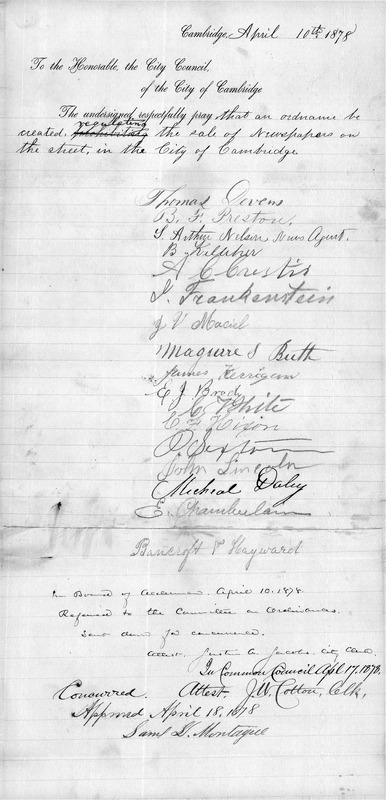 Cambridge, April 10th 1878
To the Honorable, the City Council,
of the City of Cambridge
The undersigned respectfully pray that an ordnance be
regulating
created, prohibiting the sale of Newspapers on
the street, in the City of Cambridge
Thomas Devens
B. F. Preston.
S. Arthur Nelson News Agent.
B Kelleher
A C Crestis
J. Frankenstein
J V Maciel
Maguire & Ruth
James Kerrigan
E J Brod
C White
C F Hixon
Sexton
John Lincoln
Micheal Daley
E. Chamberlain
Bancroft & Hayward
In Board of Aldermen. April 10. 1878.
Referred to the Committee on Ordinances.
Sent down for concurrence.
Attest, Justin A. Jacobs. City Clerk.
In Common Council Apl 17, 1878.
Concurred. Attest J. W. Cotton, Clk,
Approved April 18, 1878
Saml L. Montague